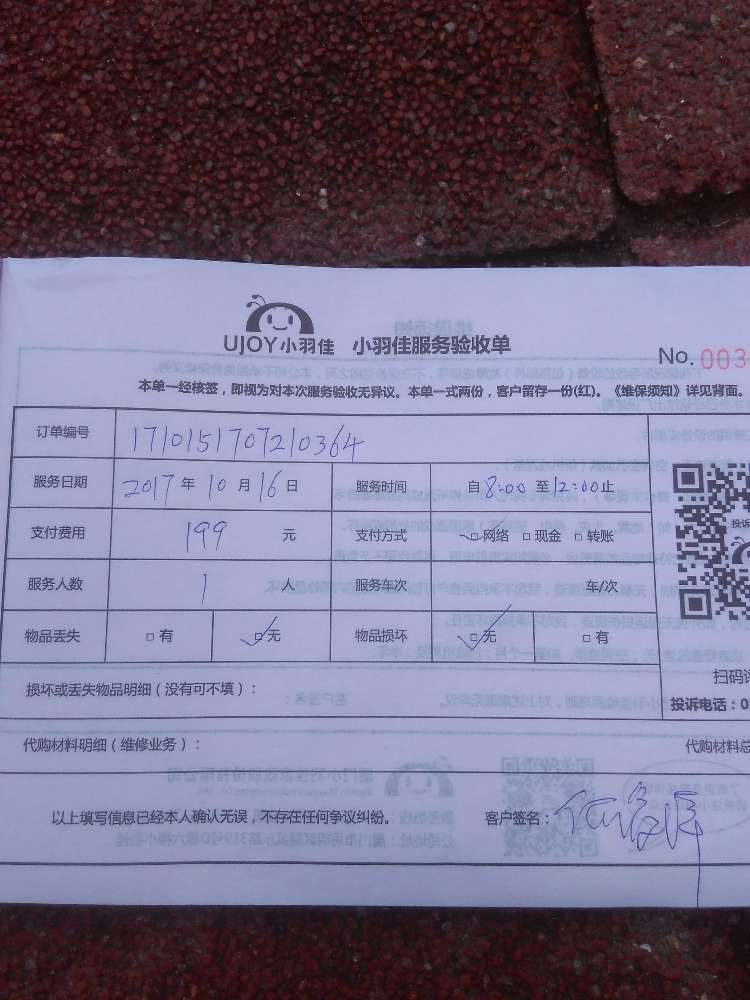 UJOY小羽佳 小羽佳服务验收单
No. 003
本单一经核签，即视为对本次服务验收无异议。本单一式两份，客户留存一份(红)。《维保须知》详见背面。
订单编号 1710151707210364
服务日期 2017 年 10 月 16 日 服务时间 自 8:00 至 12:00 止
支付费用 199 元 支付方式 网络 现金 转账
投诉
服务人数 1 人 服务车次 车/次
物品丢失 有 无 物品损坏 无 有
扫码
损坏或丢失物品明细（没有可不填）：
投诉电话：0
代购材料明细（维修业务）： 代购材料总
以上填写信息已经本人确认无误，不存在任何争议纠纷。 客户签名：